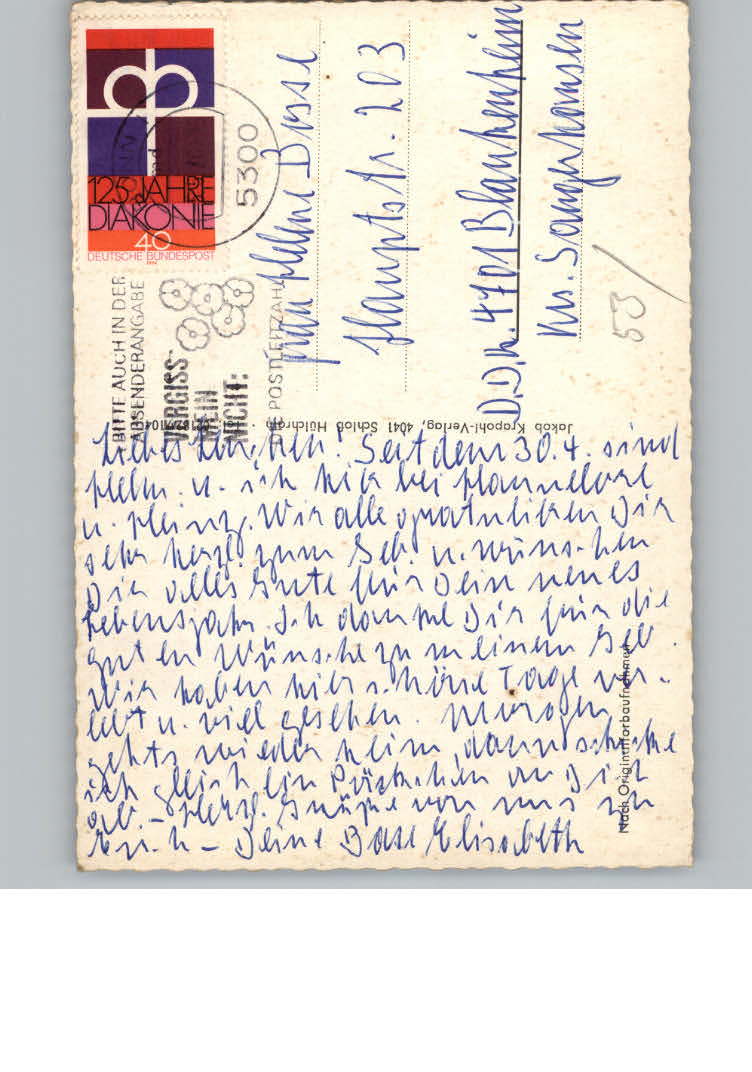 125 JAHRE
DIAKONIE
40
DEUTSCHE BUNDESPOST
5300
BITTE AUCH IN DER
ABSENDERANGABE
VERGISS
MEIN
NICHT:
DIE POSTLEITZAHL
Frau Helene Bosse
Hauptstr. 203
D.D.R. 4701 Blankenheim
Krs. Sangerhausen
53/
Jakob Krapohl-Verlag, 4041 Schloß Hülchrath
Nach Originalfarbaufnahmen
Liebes Lenchen! Seit dem 30.4. sind
Helm. u. ich hier bei Hannelore
u. Heinz. Wir alle gratulieren Dir
sehr herzl. zum Geb. u. wünschen
Dir alles Gute für Dein neues
Lebensjahr. Ich danke Dir für die
guten Wünsche zu meinem Geb.
Wir haben hier schöne Tage ver-
lebt u. viel gesehen. Morgen
gehts wieder heim dann schicke
ich gleich ein Päckchen an Dich
ab. – Herzl. Grüße von uns an
Euch – Deine Base Elisabeth